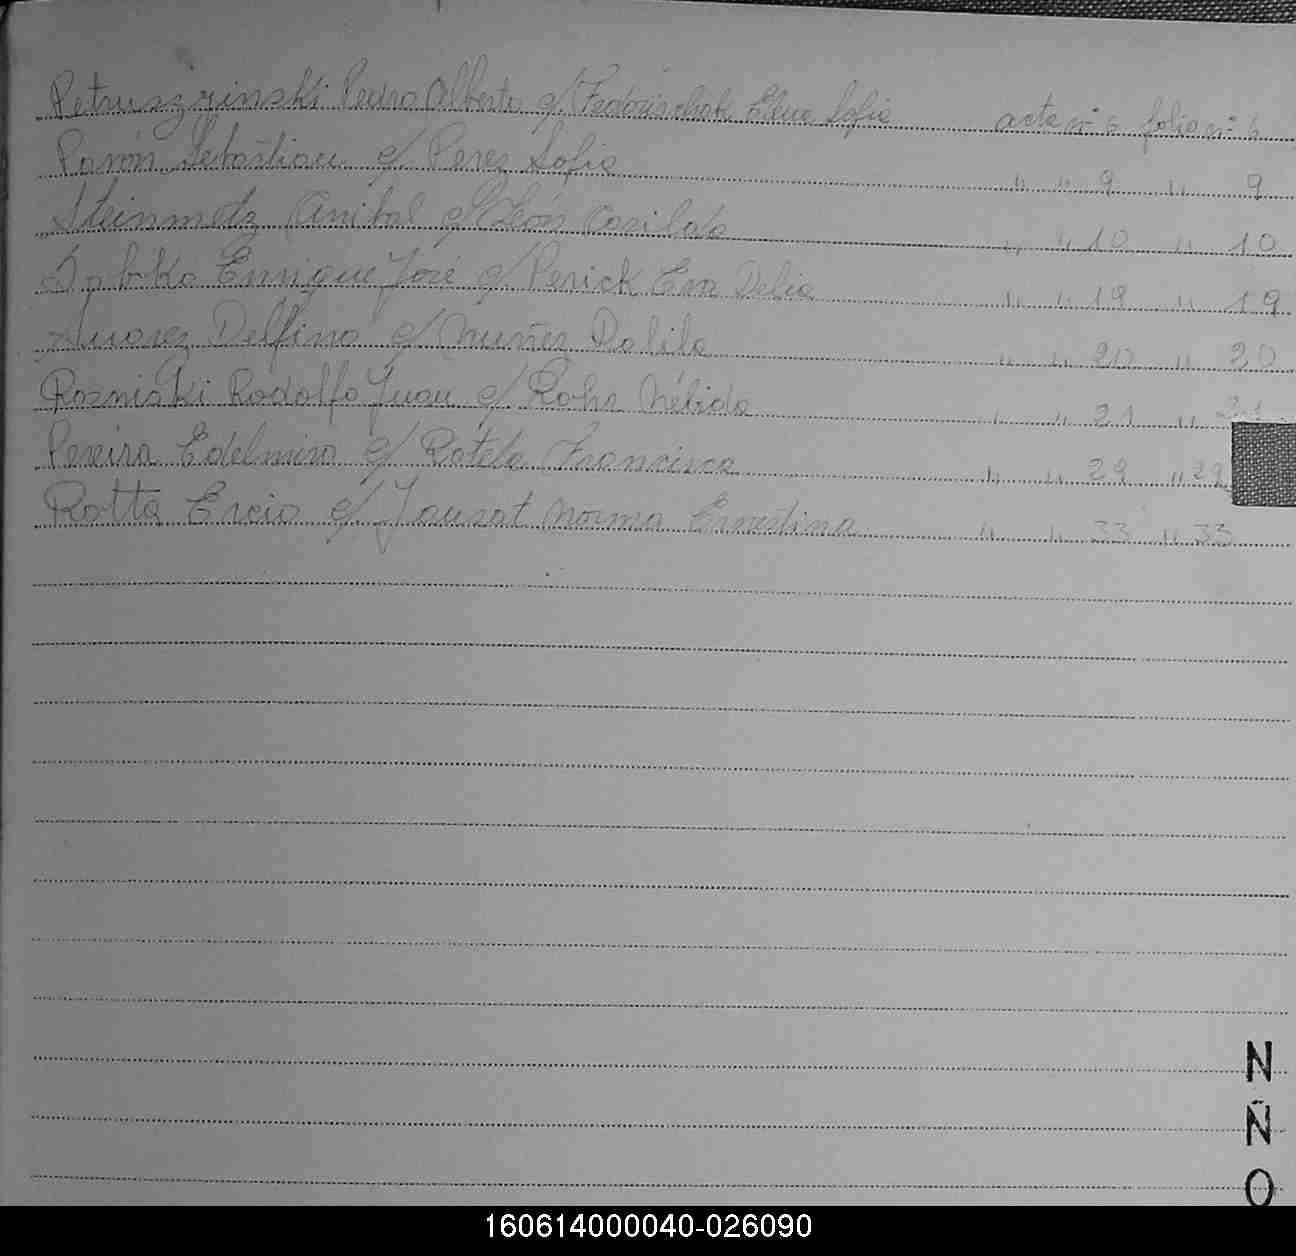 Petruszrinski Pedro Alberto c/ Fedorischak Elena Sofia acta nº 6 folio nº 6
Ramón Sebastian c/ Perez Sofia " " 9 " 9
Steinmetz Anibal c/ León Casilda " " 10 " 10
Enrique José c/ Perick Eva Delia " " 19 " 19
Suarez Delfino c/ Nuñez Dalila " " 20 " 20
Rozniski Rodolfo Juan c/ Rohr Nélida " " 21 " 21
Pereira Edelmiro c/ Rotela Francisca " " 29 " 29
Rotta Ercio c/ Jausat Norma Ernestina " " 33 " 33
N
Ñ
O
160614000040-026090